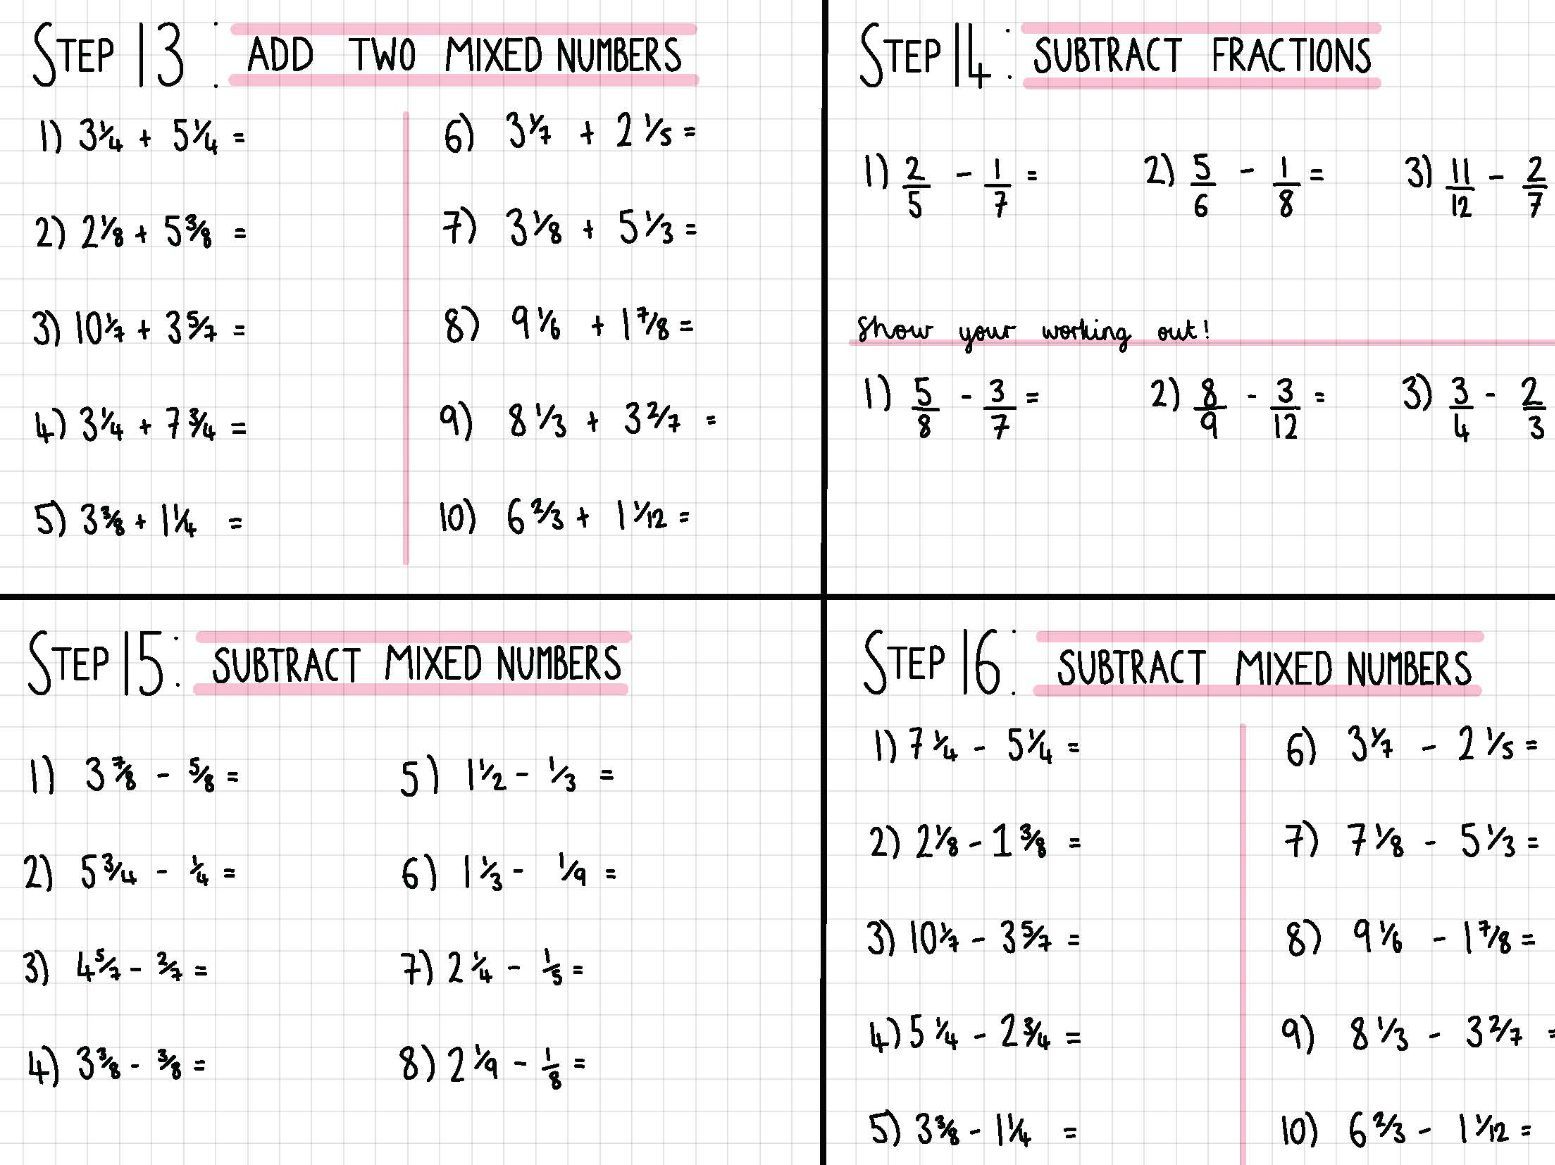 STEP 13: ADD TWO MIXED NUMBERS
1) 3 1/4 + 5 1/4 =
2) 2 1/8 + 5 3/8 =
3) 10 1/7 + 3 5/7 =
4) 3 1/4 + 7 3/4 =
5) 3 3/8 + 1 1/4 =
6) 3 1/7 + 2 1/5 =
7) 3 1/8 + 5 1/3 =
8) 9 1/6 + 1 7/8 =
9) 8 1/3 + 3 2/7 =
10) 6 2/3 + 1 1/12 =
STEP 14: SUBTRACT FRACTIONS
1) 2/5 - 1/7 = 2) 5/6 - 1/8 = 3) 11/12 - 2/7
Show your working out!
1) 5/8 - 3/7 = 2) 8/9 - 3/12 = 3) 3/4 - 2/3
STEP 15: SUBTRACT MIXED NUMBERS
1) 3 7/8 - 5/8 =
2) 5 3/4 - 1/4 =
3) 4 5/7 - 2/7 =
4) 3 3/8 - 3/8 =
5) 1 1/2 - 1/3 =
6) 1 1/3 - 1/9 =
7) 2 1/4 - 1/5 =
8) 2 1/9 - 1/8 =
STEP 16: SUBTRACT MIXED NUMBERS
1) 7 1/4 - 5 1/4 =
2) 2 1/8 - 1 3/8 =
3) 10 1/7 - 3 5/7 =
4) 5 1/4 - 2 3/4 =
5) 3 3/8 - 1 1/4 =
6) 3 1/7 - 2 1/5 =
7) 7 1/8 - 5 1/3 =
8) 9 1/6 - 1 7/8 =
9) 8 1/3 - 3 2/7 =
10) 6 2/3 - 1 1/12 =